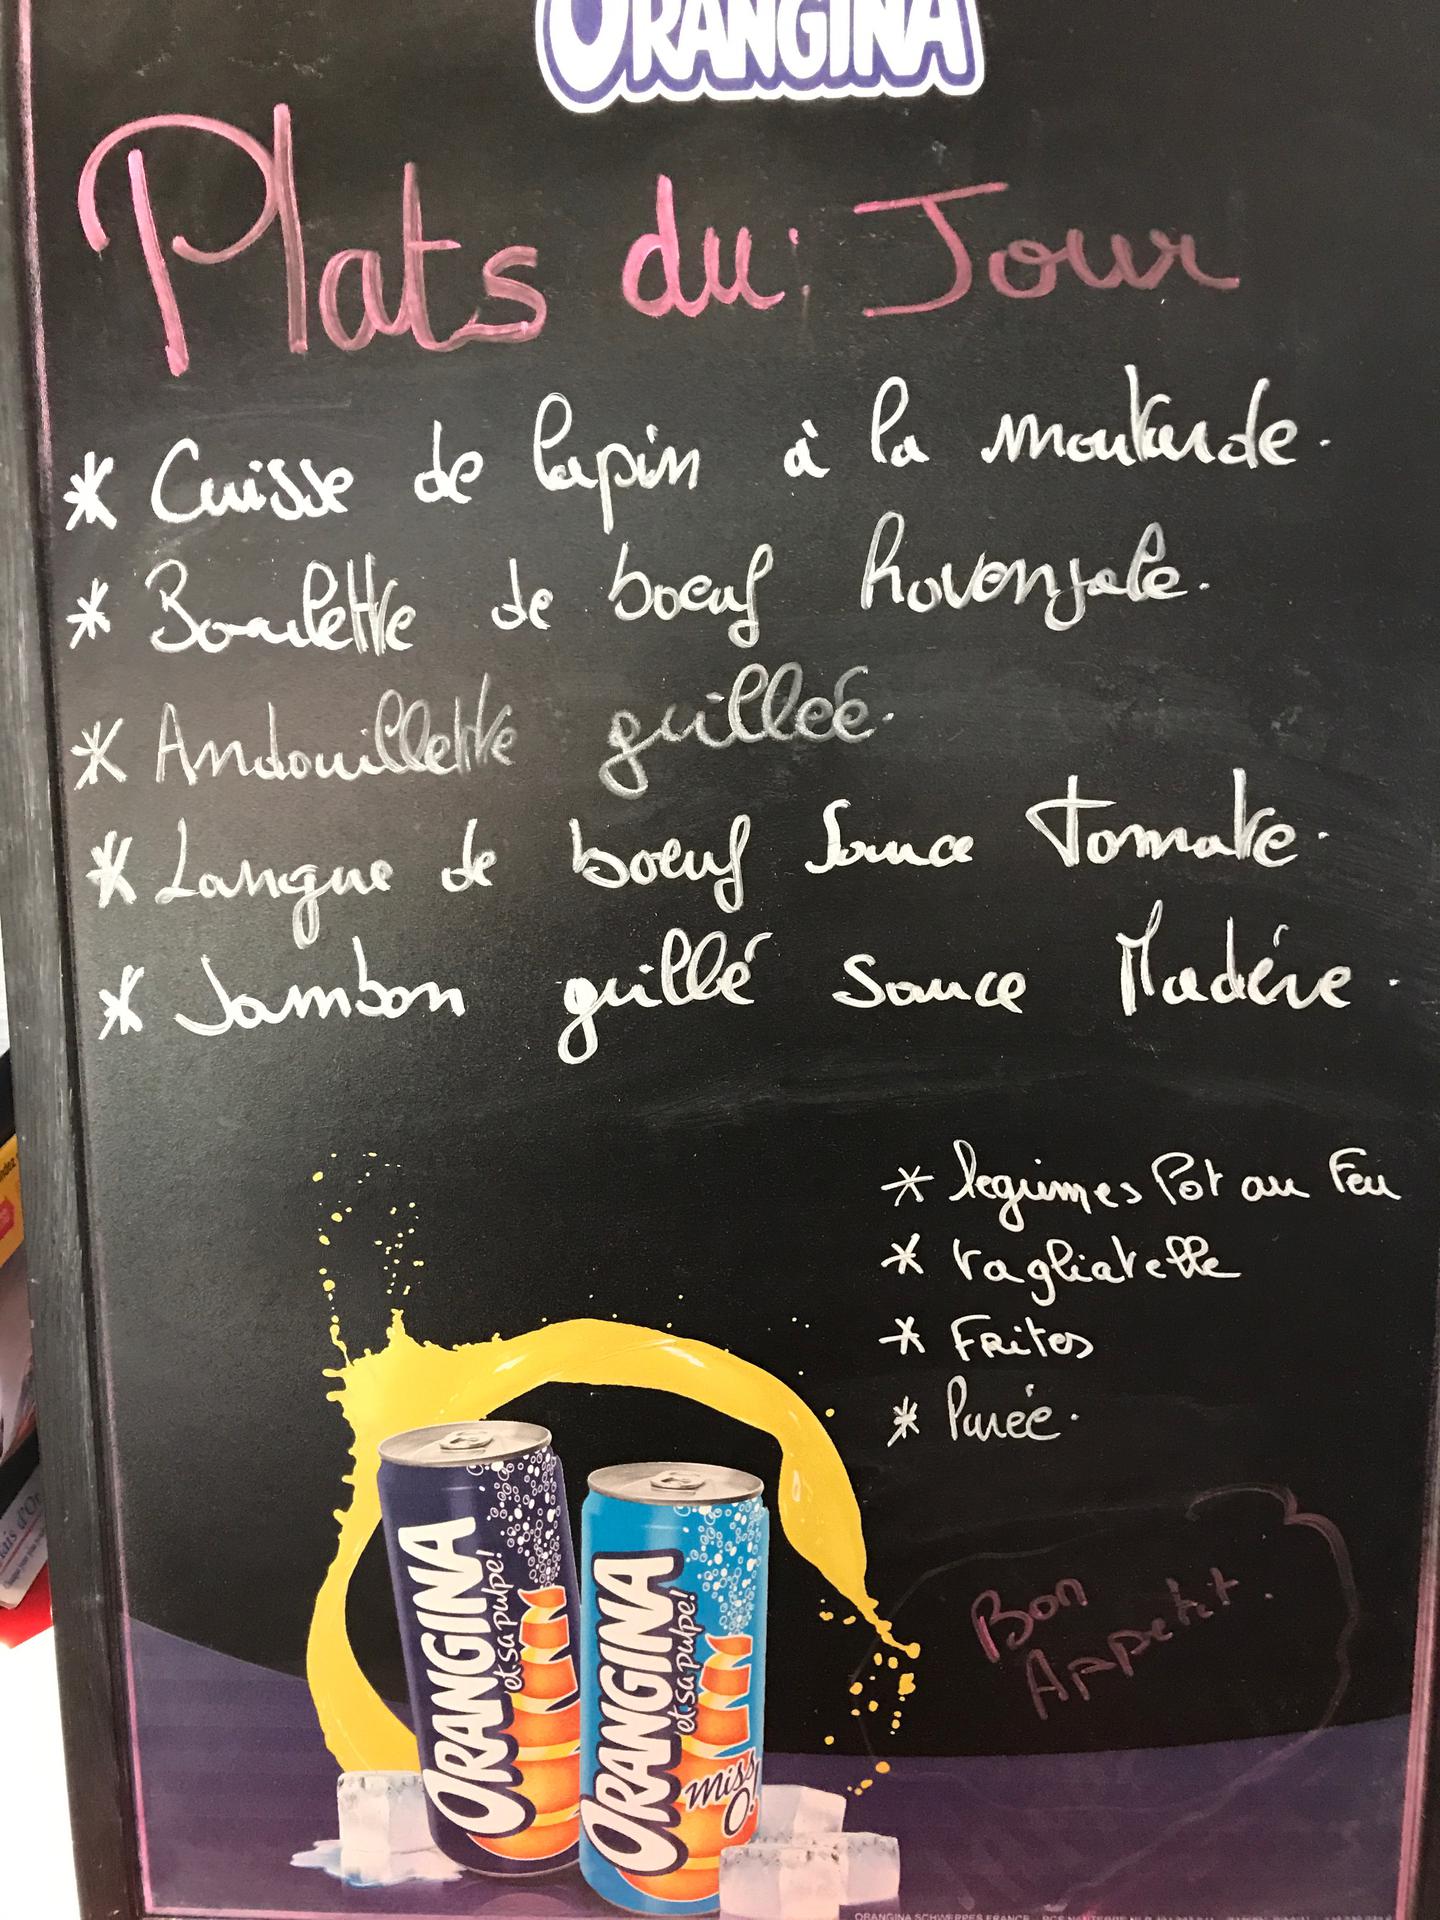 ORANGINA
Plats du Jour
* Cuisse de lapin à la moutarde.
* Boulette de boeuf Provençale.
* Andouillette grillée.
* Langue de boeuf Sauce Tomate.
* Jambon grillé sauce Madére.
* legumes Pot au Feu
* tagliatelle
* Frites
* Purée.
Bon
Appetit.
ORANGINA
et sa pulpe!
ORANGINA
et sa pulpe!
miss
O!